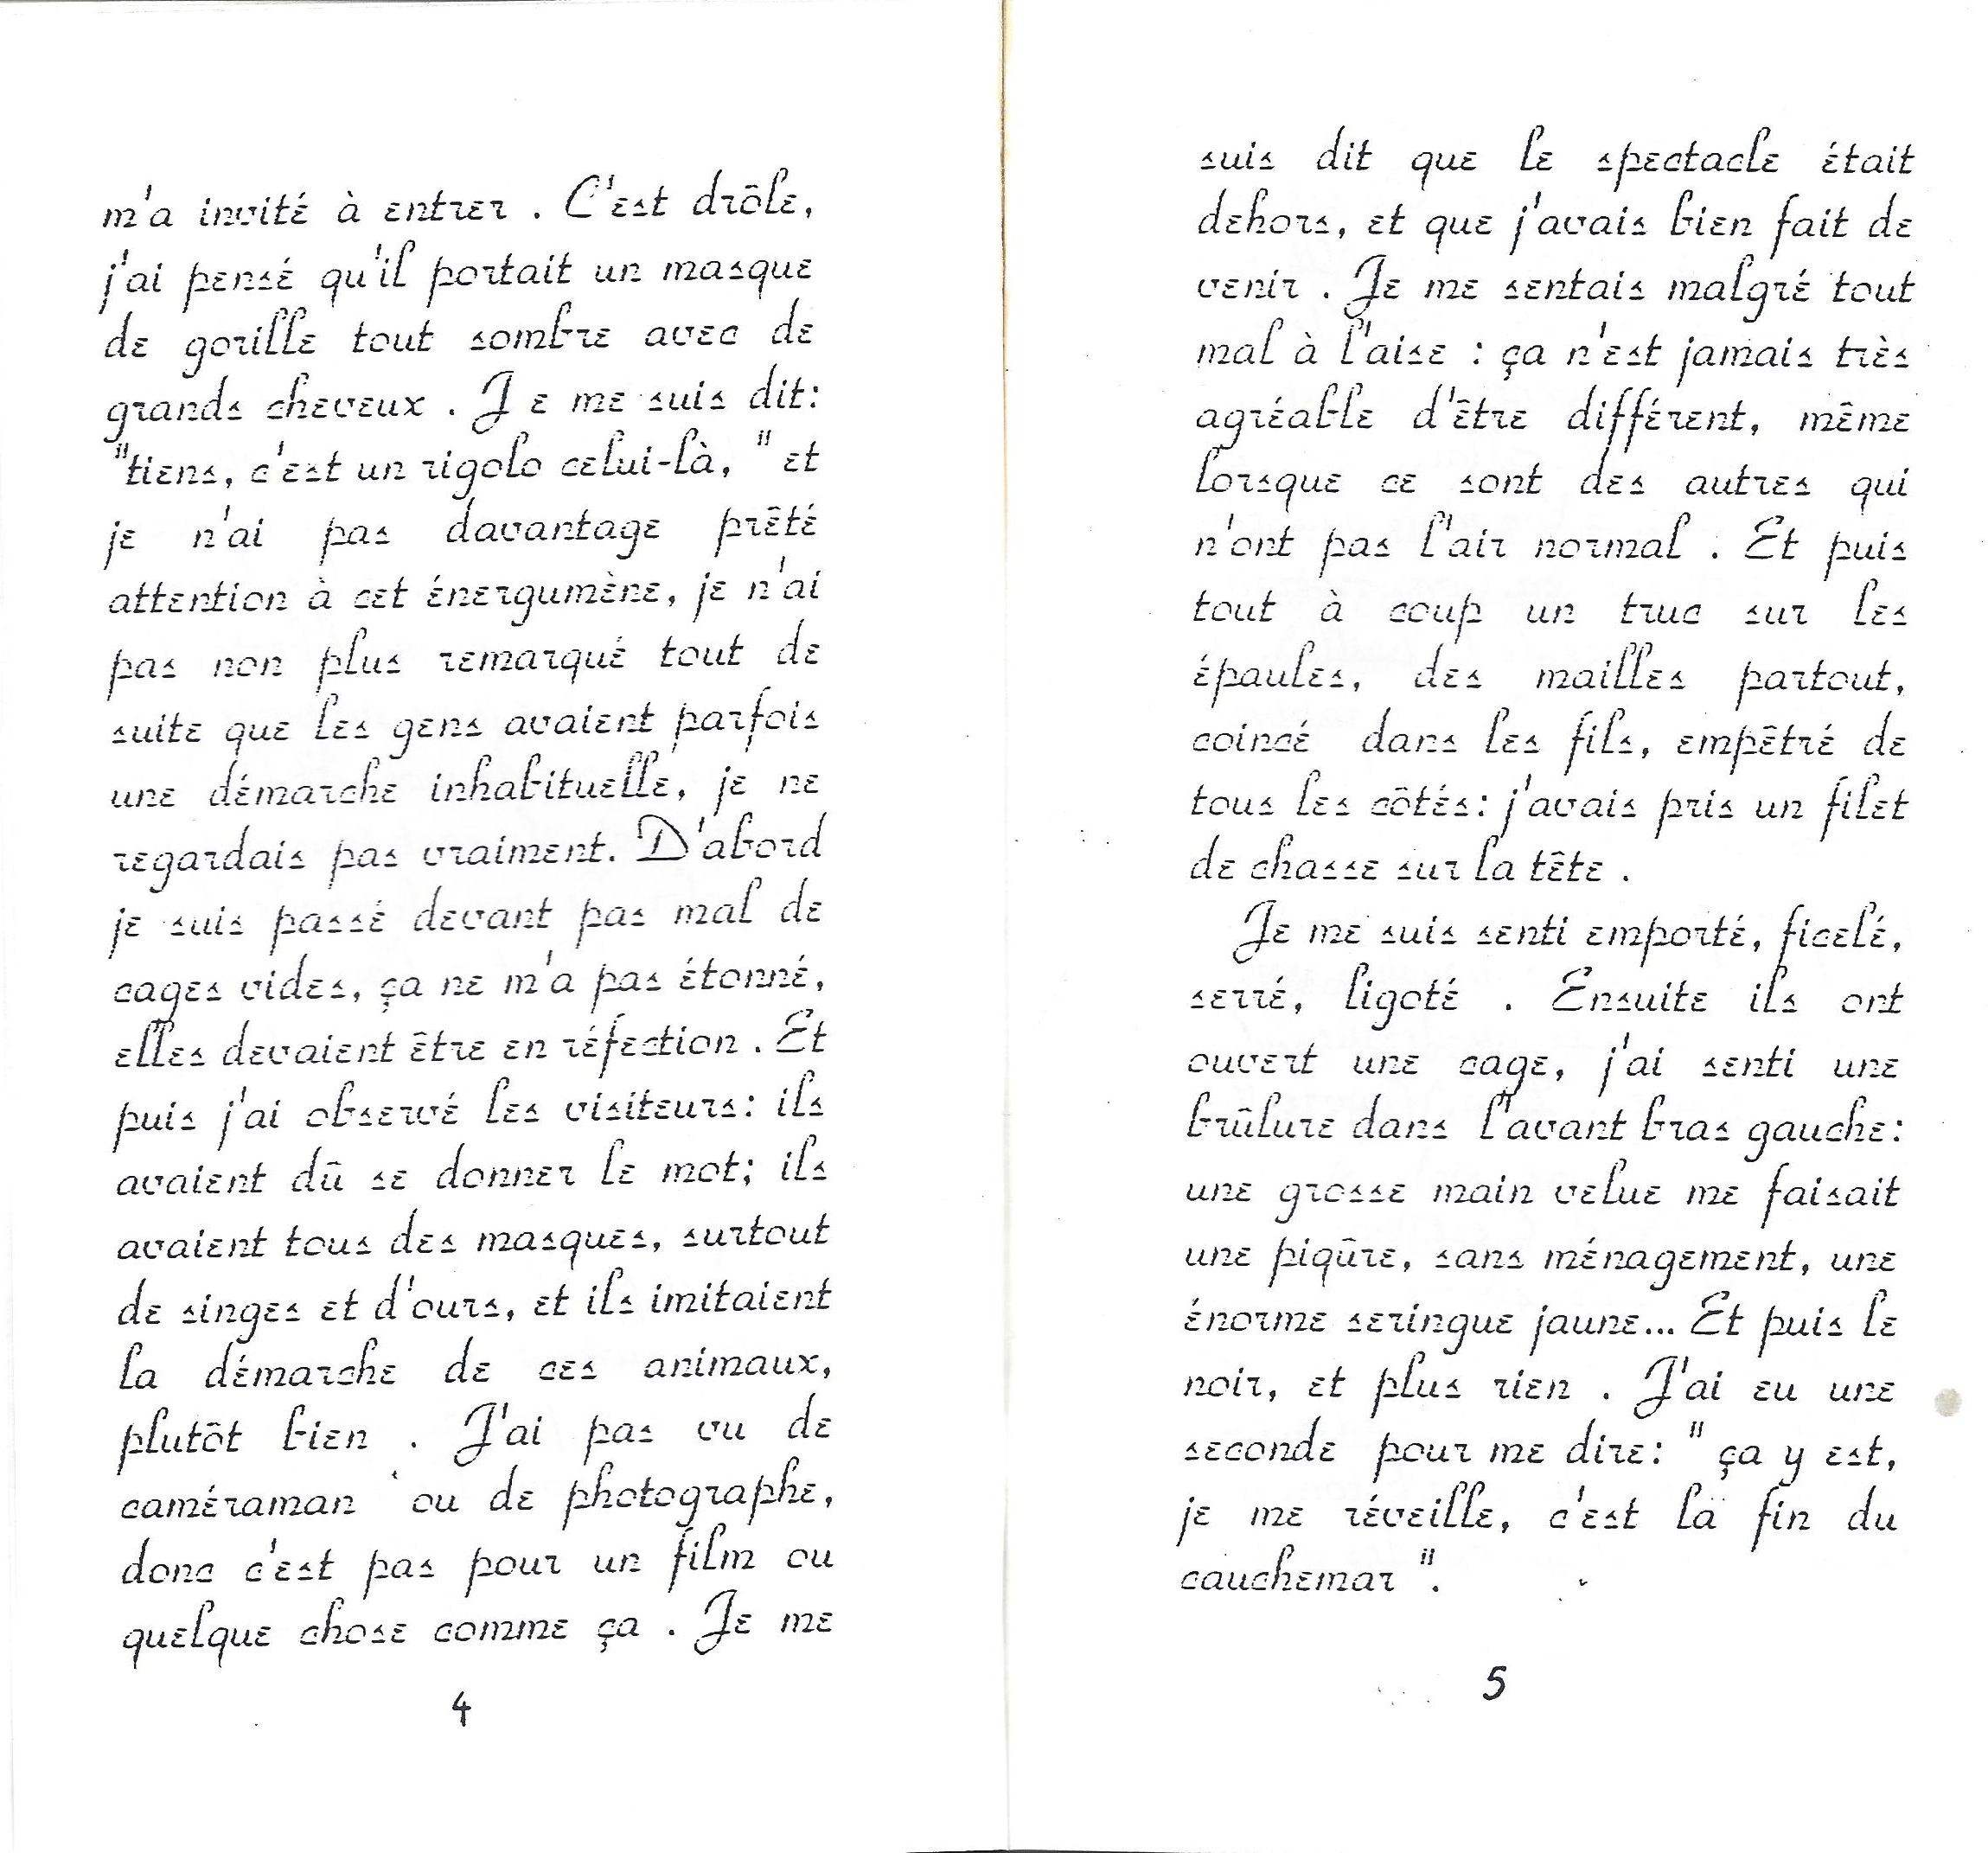 m'a invité à entrer . C'est drôle,
j'ai pensé qu'il portait un masque
de gorille tout sombre avec de
grands cheveux . J e me suis dit:
"tiens, c'est un rigolo celui-là, " et
je n'ai pas davantage prêté
attention à cet énergumène, je n'ai
pas non plus remarqué tout de
suite que les gens avaient parfois
une démarche inhabituelle, je ne
regardais pas vraiment. D'abord
je suis passé devant pas mal de
cages vides, ça ne m'a pas étonné,
elles devaient être en réfection . Et
puis j'ai observé les visiteurs: ils
avaient dû se donner le mot; ils
avaient tous des masques, surtout
de singes et d'ours, et ils imitaient
la démarche de ces animaux,
plutôt bien . J'ai pas vu de
caméraman ou de photographe,
donc c'est pas pour un film ou
quelque chose comme ça . Je me
4
suis dit que le spectacle était
dehors, et que j'avais bien fait de
venir . Je me sentais malgré tout
mal à l'aise : ça n'est jamais très
agréable d'être différent, même
lorsque ce sont des autres qui
n'ont pas l'air normal . Et puis
tout à coup un truc sur les
épaules, des mailles partout,
coincé dans les fils, empêtré de
tous les côtés: j'avais pris un filet
de chasse sur la tête .
Je me suis senti emporté, ficelé,
serré, ligoté . Ensuite ils ont
ouvert une cage, j'ai senti une
brûlure dans l'avant bras gauche:
une grosse main velue me faisait
une piqûre, sans ménagement, une
énorme seringue jaune... Et puis le
noir, et plus rien . J'ai eu une
seconde pour me dire: " ça y est,
je me réveille, c'est la fin du
cauchemar ".
5